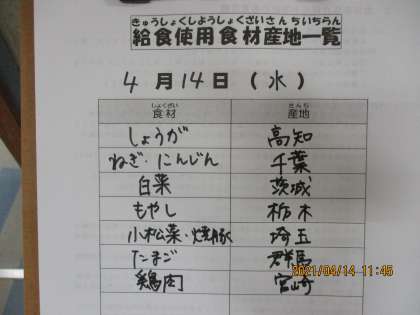 きゅうしょくしようしょくざいさんちいちらん
給食使用食材産地一覧
4月14日(水)
しょくざい さんち
食材 産地
しょうが 高知
ねぎ・にんじん 千葉
白菜 茨城
もやし 栃木
小松菜・焼豚 埼玉
たまご 群馬
鶏肉 宮崎
2021/04/14 11:45